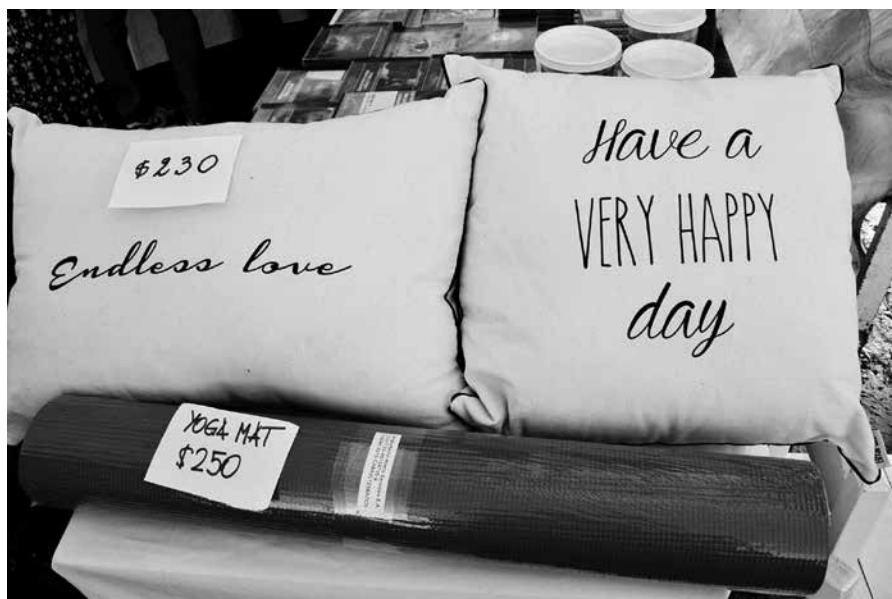 $230
Endless love
Have a
VERY HAPPY
day
YOGA MAT
$250